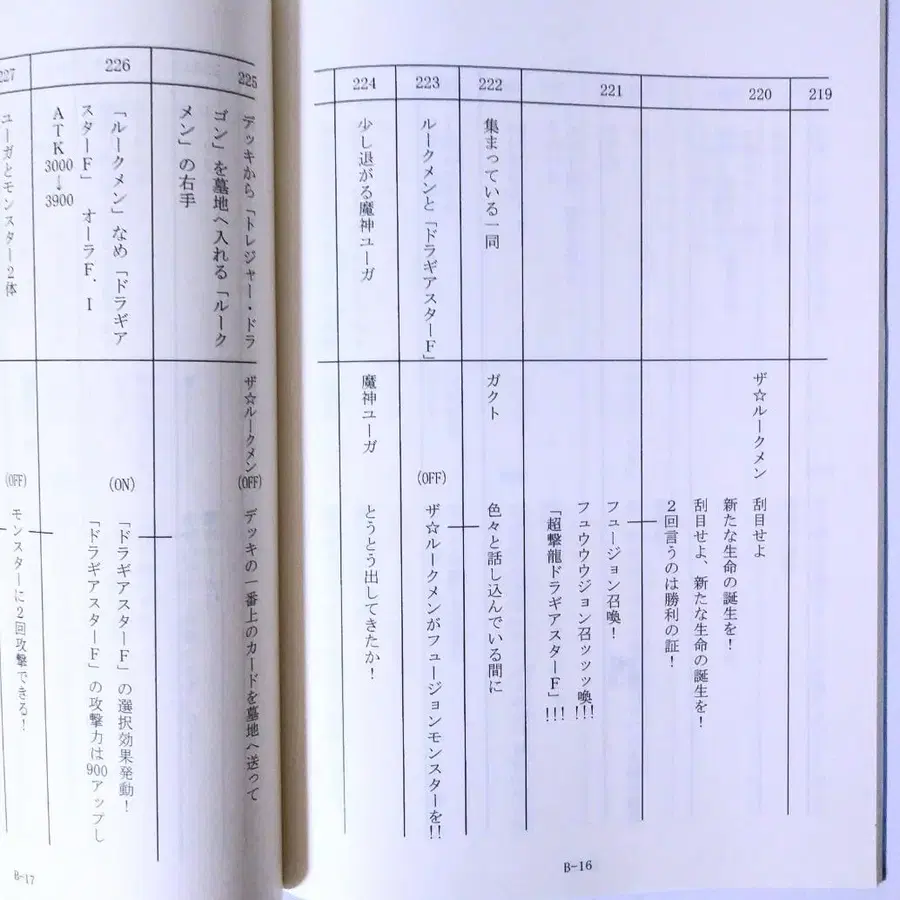 219
220
ザ☆ルークメン 刮目せよ
新たな生命の誕生を！
刮目せよ、新たな生命の誕生を！
２回言うのは勝利の証！
221
フュージョン召喚！
フュウウウジョン召ッッッ喚!!!
「超撃龍ドラギアスターＦ」!!!
222
集まっている一同
ガクト 色々と話し込んでいる間に
223
ルークメンと「ドラギアスターＦ」
(OFF) ザ☆ルークメンがフュージョンモンスターを!!
224
少し退がる魔神ユーガ
魔神ユーガ とうとう出してきたか！
B-16
225
デッキから「トレジャー・ドラ
ゴン」を墓地へ入れる「ルーク
メン」の右手
ザ☆ルークメン(OFF) デッキの一番上のカードを墓地へ送って
226
「ルークメン」なめ「ドラギア
スターＦ」 オーラＦ．Ｉ
ＡＴＫ3000→3900
(ON) 「ドラギアスターＦ」の選択効果発動！
「ドラギアスターＦ」の攻撃力は900アップし
227
ユーガとモンスター２体
(OFF) モンスターに２回攻撃できる！
B-17